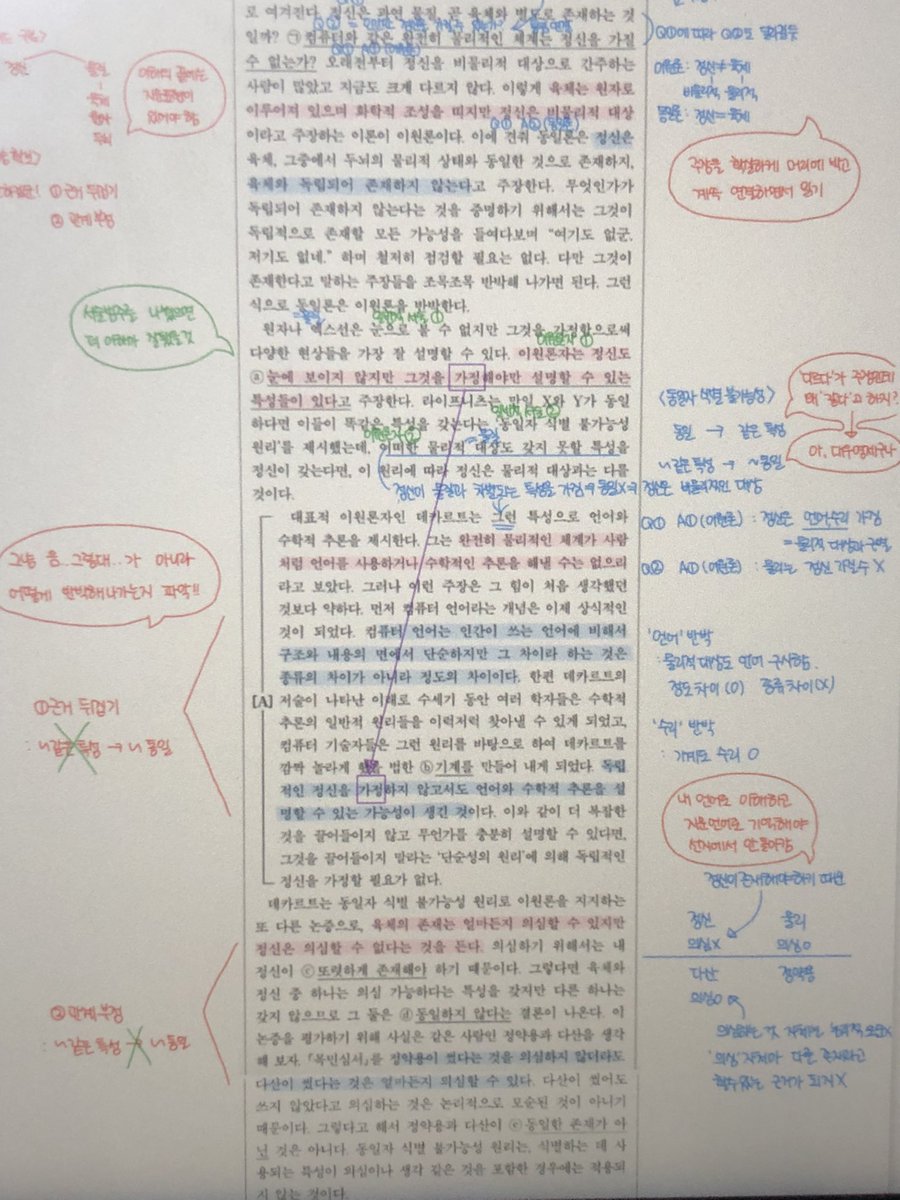 로 여겨진다. 정신은 과연 물질, 곧 육체와 별도로 존재하는 것
일까? ㉠컴퓨터와 같은 완전히 물리적인 체계는 정신을 가질
수 없는가? 오래전부터 정신을 비물리적 대상으로 간주하는
사람이 많았고 지금도 크게 다르지 않다. 이렇게 육체는 원자로
이루어져 있으며 화학적 조성을 띠지만 정신은 비물리적 대상
이라고 주장하는 이론이 이원론이다. 이에 견줘 동일론은 정신은
육체, 그중에서 두뇌의 물리적 상태와 동일한 것으로 존재하지,
육체와 독립되어 존재하지 않는다고 주장한다. 무엇인가가
독립되어 존재하지 않는다는 것을 증명하기 위해서는 그것이
독립적으로 존재할 모든 가능성을 들여다보며 “여기도 없군,
저기도 없네.” 하며 철저히 점검할 필요는 없다. 다만 그것이
존재한다고 말하는 주장들을 조목조목 반박해 나가면 된다. 그런
식으로 동일론은 이원론을 반박한다.
원자나 엑스선은 눈으로 볼 수 없지만 그것을 가정함으로써
다양한 현상들을 가장 잘 설명할 수 있다. 이원론자는 정신도
ⓐ눈에 보이지 않지만 그것을 가정해야만 설명할 수 있는
특성들이 있다고 주장한다. 라이프니츠는 만일 X와 Y가 동일
하다면 이들이 똑같은 특성을 갖는다는 ‘동일자 식별 불가능성
원리’를 제시했는데, 어떠한 물리적 대상도 갖지 못할 특성을
정신이 갖는다면, 이 원리에 따라 정신은 물리적 대상과는 다를
것이다.
대표적 이원론자인 데카르트는 그런 특성으로 언어와
수학적 추론을 제시한다. 그는 완전히 물리적인 체계가 사람
처럼 언어를 사용하거나 수학적인 추론을 해낼 수는 없으리
라고 보았다. 그러나 이런 주장은 그 힘이 처음 생각했던
것보다 약하다. 먼저 컴퓨터 언어라는 개념은 이제 상식적인
것이 되었다. 컴퓨터 언어는 인간이 쓰는 언어에 비해서
구조와 내용의 면에서 단순하지만 그 차이라 하는 것은
종류의 차이가 아니라 정도의 차이이다. 한편 데카르트의
[A] 저술이 나타난 이래로 수세기 동안 여러 학자들은 수학적
추론의 일반적 원리들을 이럭저럭 찾아낼 수 있게 되었고,
컴퓨터 기술자들은 그런 원리를 바탕으로 하여 데카르트를
깜짝 놀라게 했을 법한 ⓑ기계를 만들어 내게 되었다. 독립
적인 정신을 가정하지 않고서도 언어와 수학적 추론을 설
명할 수 있는 가능성이 생긴 것이다. 이와 같이 더 복잡한
것을 끌어들이지 않고 무언가를 충분히 설명할 수 있다면,
그것을 끌어들이지 말라는 ‘단순성의 원리’에 의해 독립적인
정신을 가정할 필요가 없다.
데카르트는 동일자 식별 불가능성 원리로 이원론을 지지하는
또 다른 논증으로, 육체의 존재는 얼마든지 의심할 수 있지만
정신은 의심할 수 없다는 것을 든다. 의심하기 위해서는 내
정신이 ⓒ또렷하게 존재해야 하기 때문이다. 그렇다면 육체와
정신 중 하나는 의심 가능하다는 특성을 갖지만 다른 하나는
갖지 않으므로 그 둘은 ⓓ동일하지 않다는 결론이 나온다. 이
논증을 평가하기 위해 사실은 같은 사람인 정약용과 다산을 생각
해 보자. 『목민심서』를 정약용이 썼다는 것을 의심하지 않더라도
다산이 썼다는 것은 얼마든지 의심할 수 있다. 다산이 썼어도
쓰지 않았다고 의심하는 것은 논리적으로 모순된 것이 아니기
때문이다. 그렇다고 해서 정약용과 다산이 ⓔ동일한 존재가 아
닌 것은 아니다. 동일자 식별 불가능성 원리는, 식별하는 데 사
용되는 특성이 의심이나 생각 같은 것을 포함한 경우에는 적용되
지 않는 것이다.
정신
육체
① 근거 뒤집기
② 관계 부정
그냥 음..그렇대..가 아니라
어떻게 반박해나가는지 파악!!
① 근거 뒤집기
: ~같은 특성 → ~동일
② 관계 부정
: ~같은 특성 → ~동일
이원론 : 정신≠육체
비물리적 물리적
동일론 : 정신=육체
주장을 확실하게 머리에 박고
계속 연결하면서 읽기
이원론자 ①
이원론자 ②
<동일자 식별 불가능성>
동일 → 같은 특성
~같은 특성 → ~동일
'다르다'가 주장인데
왜 '같다'고 하지?
아, 대우명제구나
정신은 비물리적인 대상
Q① A① (이원론) : 정신은 언어, 수리 가정
= 물리적 대상과 구별
Q② A① (이원론) : 물리는 정신 가질수 X
'언어' 반박
: 물리적 대상도 언어 구사함.
정도차이 (O) 종류차이 (X)
'수리' 반박
: 기계도 수리 O
내 언어로 이해하고
지문언어로 기억해야
선지에서 안 틀어감
정신이 존재해야하기 때문
정신 물리
의심X 의심O
다산 정약용
의심O